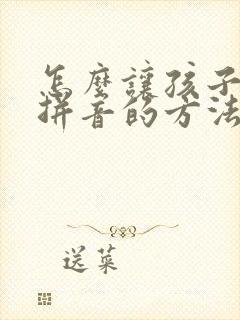 怎麼讓孩子
拼音的方法
送菜